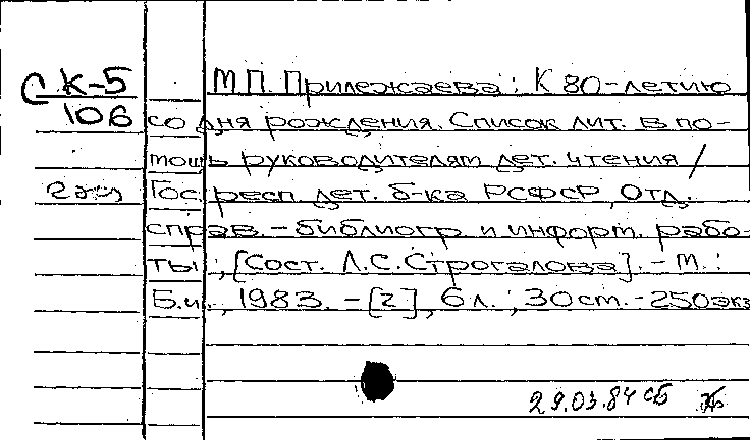 С К-5
106
2 экз
М.П. Прилежаева: К 80-летию
со дня рождения. Список лит. в по-
мощь руководителям дет. чтения /
Гос. респ. дет. б-ка РСФСР, Отд.
справ.-библиогр. и информ. рабо-
ты; [Сост. Л.С. Строгалова]. - М.:
Б.и., 1983. - [2], 6 л.; 30 см. - 250 экз
29.03.84 сб